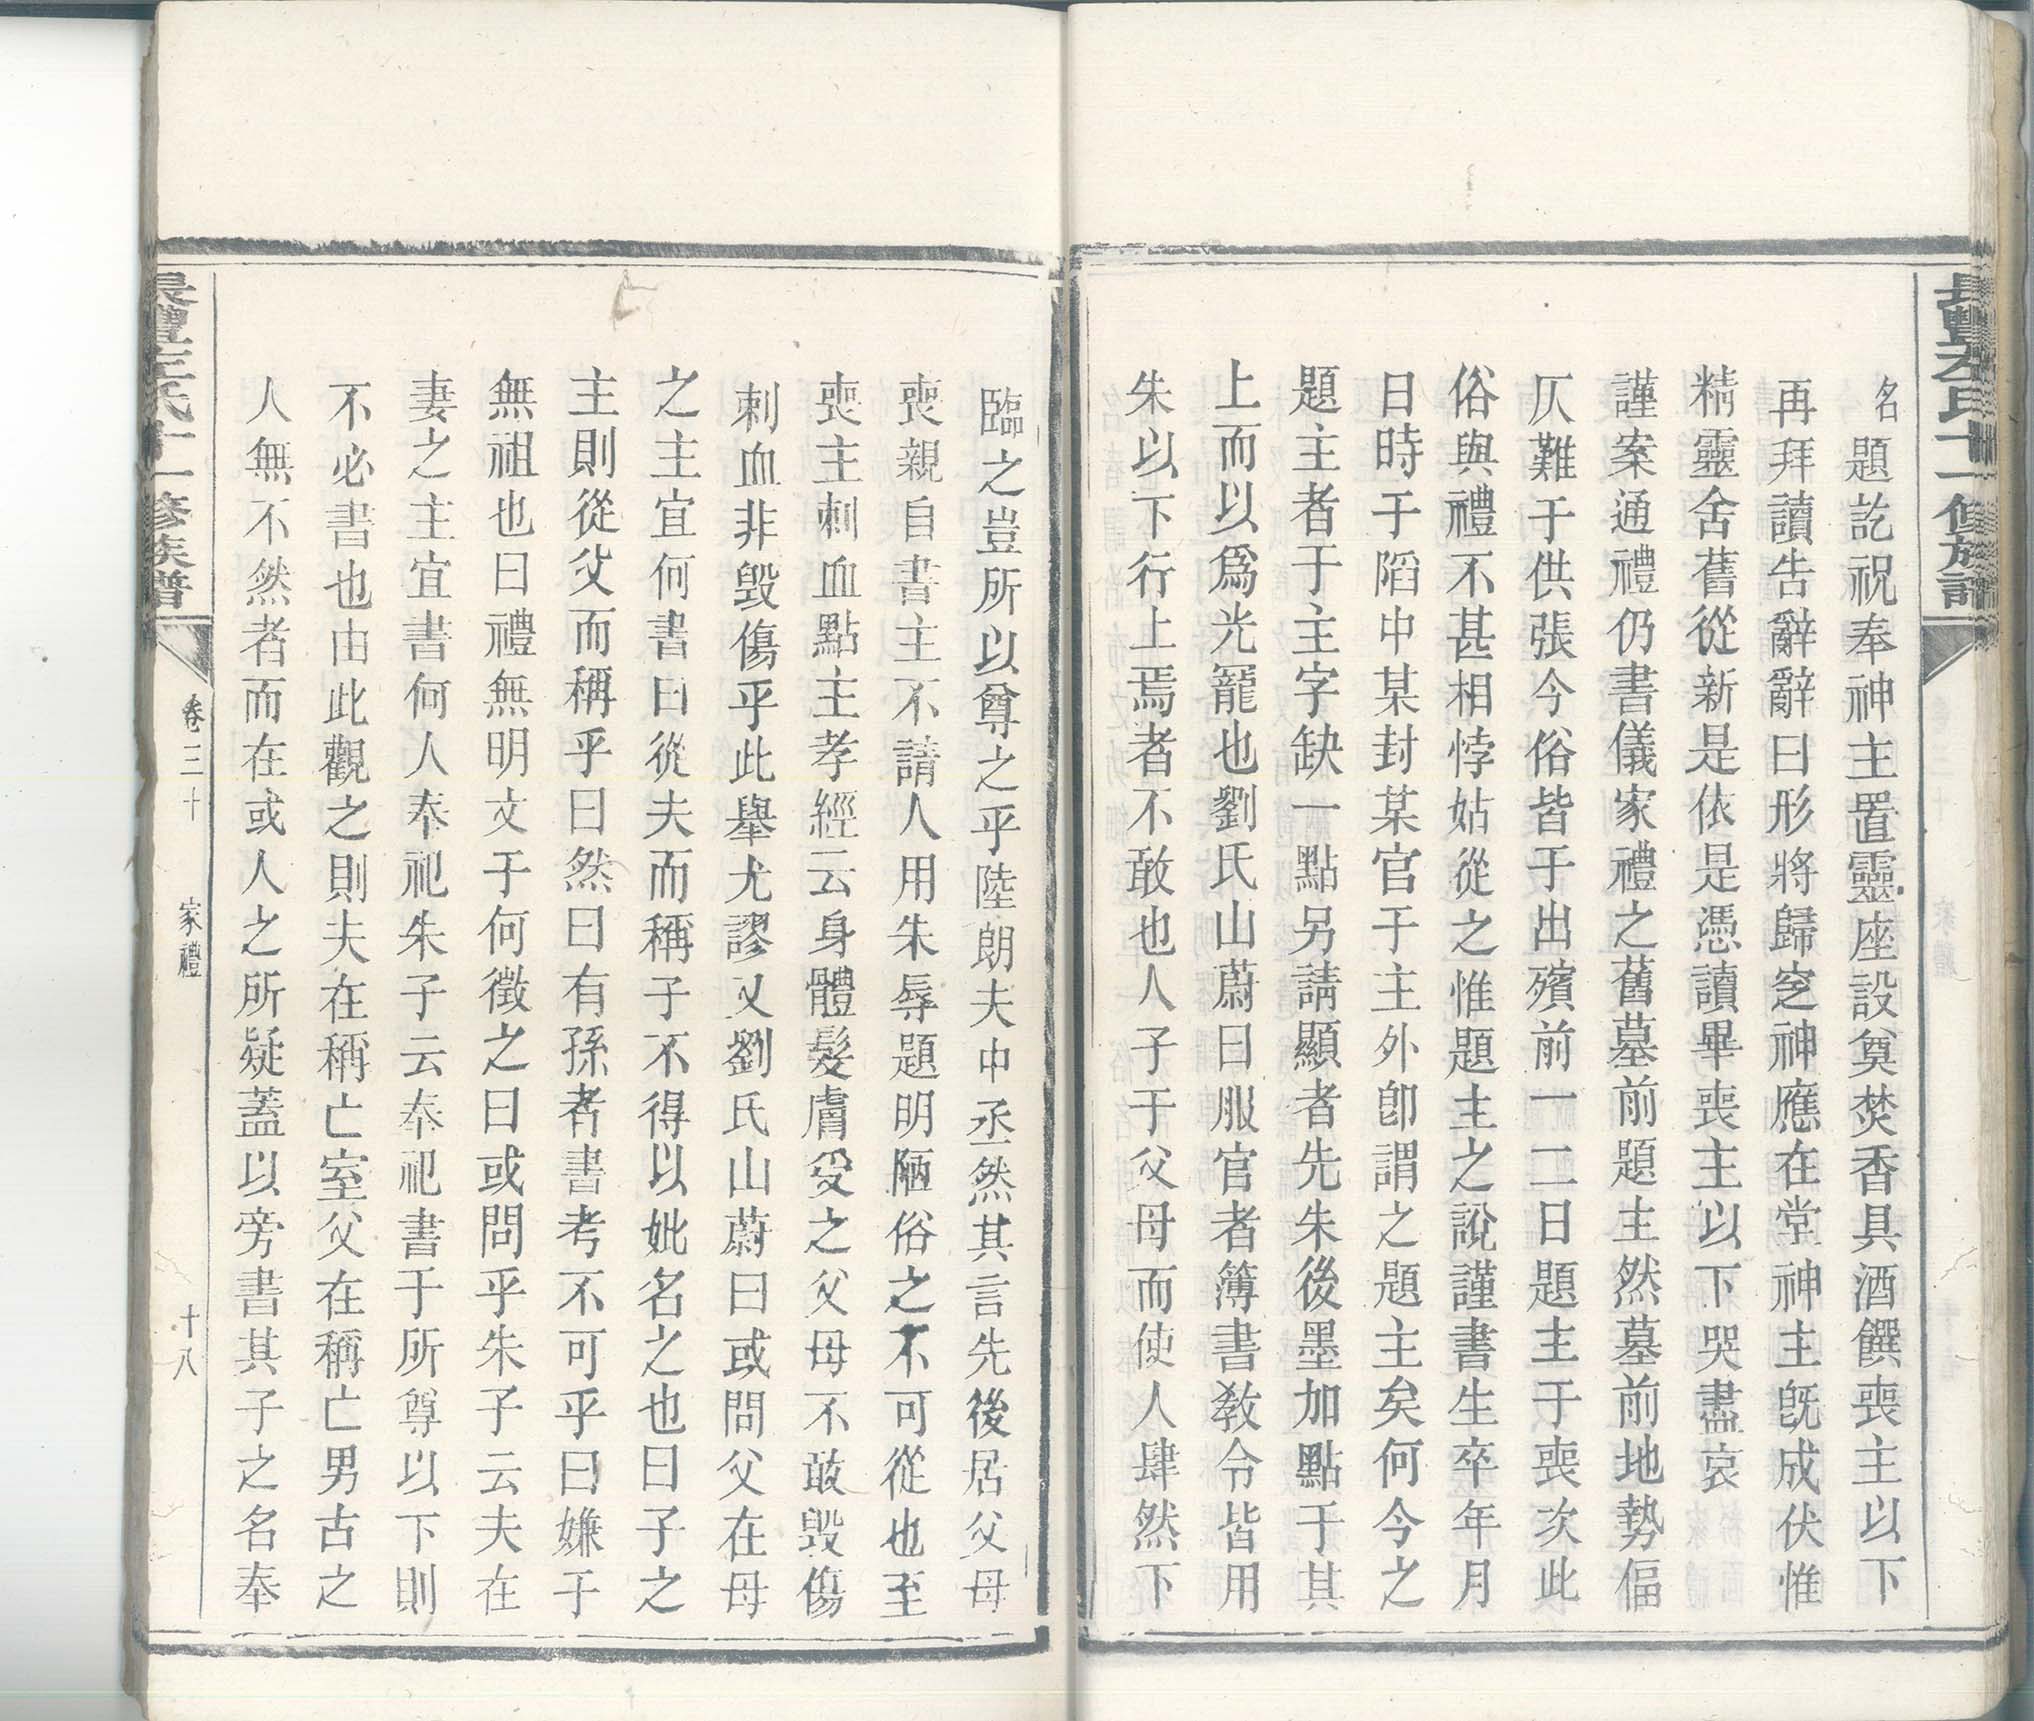 長豐左氏十一修族譜
名題訖祝奉神主置靈座設奠焚香具酒饌喪主以下
再拜讀告辭辭曰形將歸窆神應在堂神主旣成伏惟
精靈舍舊從新是依是憑讀畢喪主以下哭盡哀
謹案通禮仍書儀家禮之舊墓前題主然墓前地勢偪
仄難于供張今俗皆于出殯前一二日題主于喪次此
俗與禮不甚相悖姑從之惟題主之說謹書生卒年月
日時于䧟中某封某官于主外卽謂之題主矣何今之
題主者于主字缺一點另請顯者先朱後墨加點于其
上而以爲光寵也劉氏山蔚曰服官者簿書敎令皆用
朱以下行上焉者不敢也人子于父母而使人肆然下
臨之豈所以尊之乎陸朗夫中丞然其言先後居父母
喪親自書主不請人用朱辱題明陋俗之不可從也至
喪主刺血點主孝經云身體髮膚受之父母不敢毀傷
刺血非毀傷乎此舉尤謬又劉氏山蔚曰或問父在母
之主宜何書曰從夫而稱子不得以妣名之也曰子之
主則從父而稱乎曰然曰有孫者書考不可乎曰嫌于
無祖也曰禮無明文于何徵之曰或問乎朱子云夫在
妻之主宜書何人奉祀朱子云奉祀書于所尊以下則
不必書也由此觀之則夫在稱亡室父在稱亡男古之
人無不然者而在或人之所疑蓋以旁書其子之名奉
長豐左氏十一修族譜
卷三十
家禮
十八